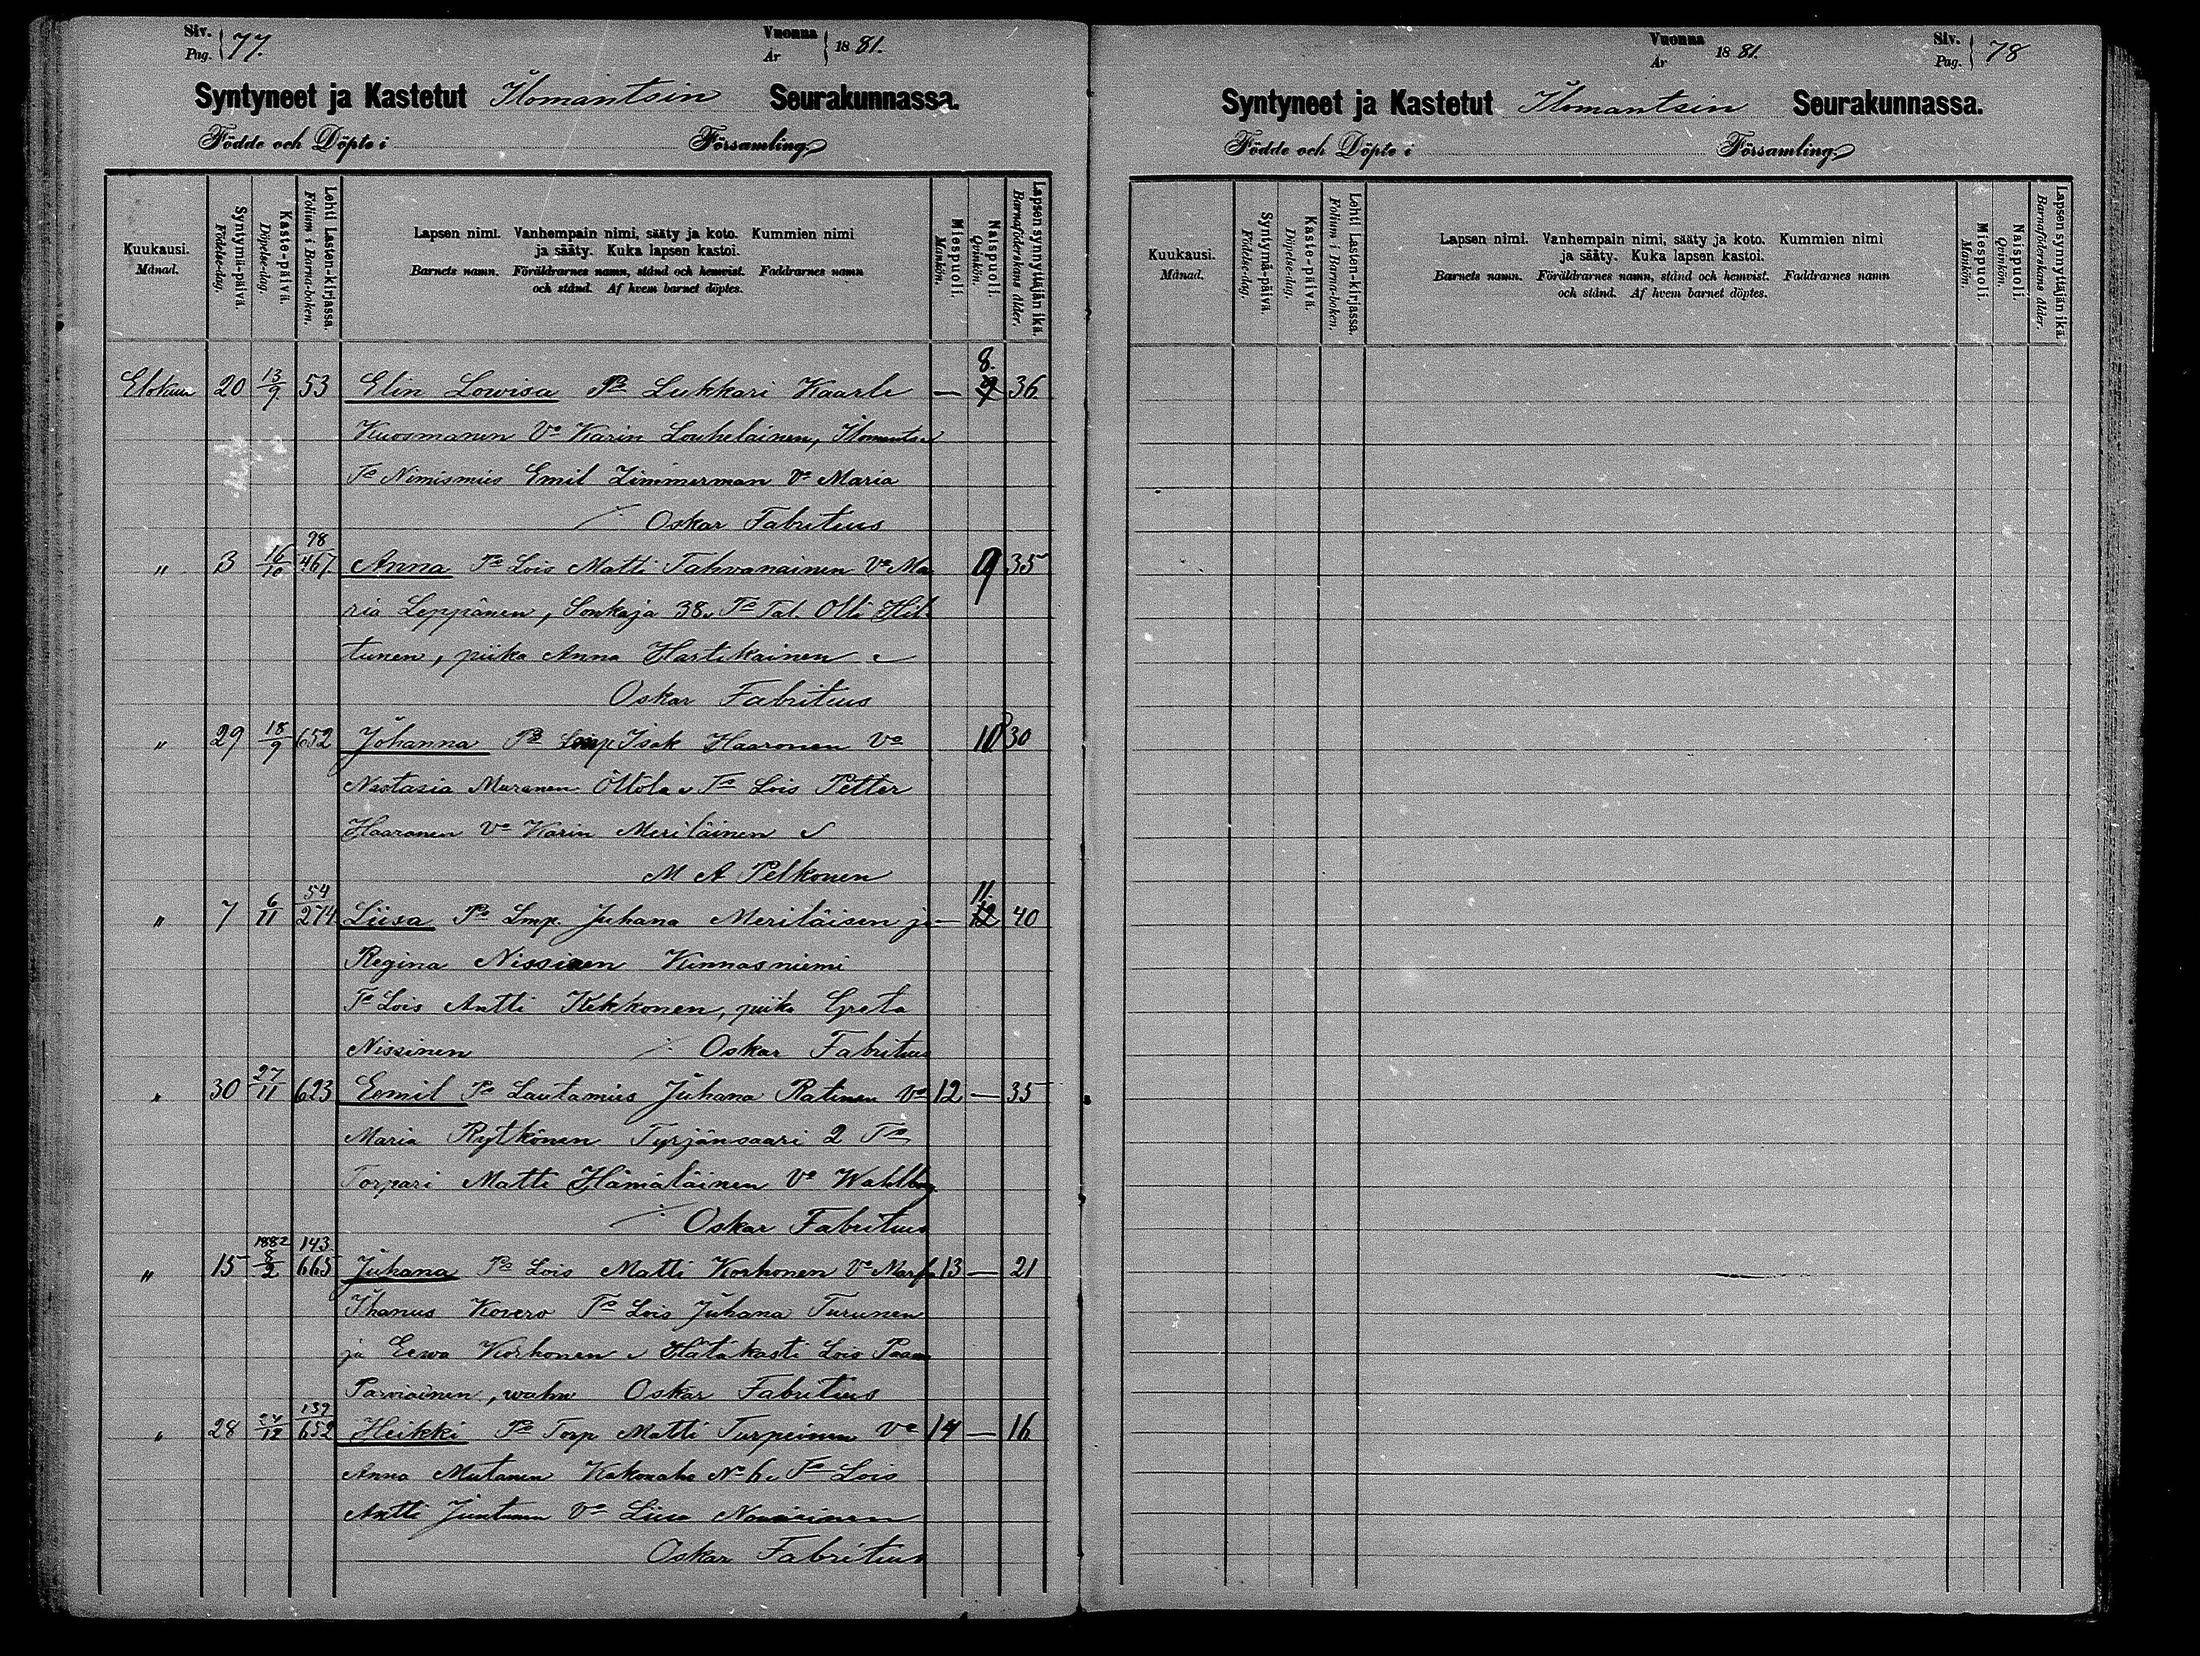 Siv. Pag. 77. Vuonna År 1881.
Syntyneet ja Kastetut Ilomantsin Seurakunnassa.
Födde och Döpte i Församling
Kuukausi. Månad.
Syntymä-päivä. Födelse-dag.
Kaste-päivä. Döpelse-dag.
Lehti Lasten-kirjassa. Folium i Barna-boken.
Lapsen nimi. Vanhempain nimi, sääty ja koto. Kummien nimi
ja sääty. Kuka lapsen kastoi.
Barnets namn. Föräldrarnes namn, stånd och hemvist. Faddrarnes namn
och stånd. Af hvem barnet döptes.
Miespuoli. Mankön.
Naispuoli. Qvinkön.
Lapsen synnyttäjän ikä. Barnaföderskans ålder.
8.
Elokuu 20 13/9 53 Elin Lowisa Ps Lukkari Kaarle — 9 36
Kuosmanen Vo Karin Louhelainen, Ilomantsi
Ts Nimismies Emil Zimmerman Vo Maria
Oskar Fabritius
98
" 3 16/10 467 Anna Ps Lois Matti Tahvanainen Vo Ma 9 35
ria Leppänen, Sonkaja 38. Ts Tal. Olli Hil-
tunen, piika Anna Hartikainen
Oskar Fabritius
" 29 18/9 652 Johanna Ps Lmp Isak Haaronen Vo 10 30
Nastasia Muranen Öttölä Ts Lois Petter
Haaranen Vo Karin Meriläinen
M A Pelkonen
54 11.
" 7 6/11 274 Liisa Ps Lmp. Juhana Meriläisen ja — 12 40
Regina Nissisen Kunnasniemi
Ts Lois Antti Kekkonen, piika Greta
Nissinen Oskar Fabritius
" 30 27/11 623 Eemil Ps Lautamies Juhana Ratinen Vo 12 — 35
Maria Rytkönen Tyrjänsaari 2 Ts
Torpari Matti Hämäläinen Vo Wahlberg
Oskar Fabritius
1882 143
" 15 8/2 665 Juhana Ps Lois Matti Korhonen Vo Marfa 13 — 21
Ihanus Kovero Ts Lois Juhana Turunen
ja Eewa Korhonen Hätäkasti Lois Paavo
Parviainen, wahv Oskar Fabritius
139
" 28 24/12 652 Heikki Ps Torp Matti Turpeinen Vo 14 — 16
Anna Mutanen Kakonaho No 6. Ts Lois
Antti Juntunen Vo Liisa
Oskar Fabritius
Vuonna År 1881. Siv. Pag. 78
Syntyneet ja Kastetut Ilomantsin Seurakunnassa.
Födde och Döpte i Församling
Kuukausi. Månad.
Syntymä-päivä. Födelse-dag.
Kaste-päivä. Döpelse-dag.
Lehti Lasten-kirjassa. Folium i Barna-boken.
Lapsen nimi. Vanhempain nimi, sääty ja koto. Kummien nimi
ja sääty. Kuka lapsen kastoi.
Barnets namn. Föräldrarnes namn, stånd och hemvist. Faddrarnes namn
och stånd. Af hvem barnet döptes.
Miespuoli. Mankön.
Naispuoli. Qvinkön.
Lapsen synnyttäjän ikä. Barnaföderskans ålder.